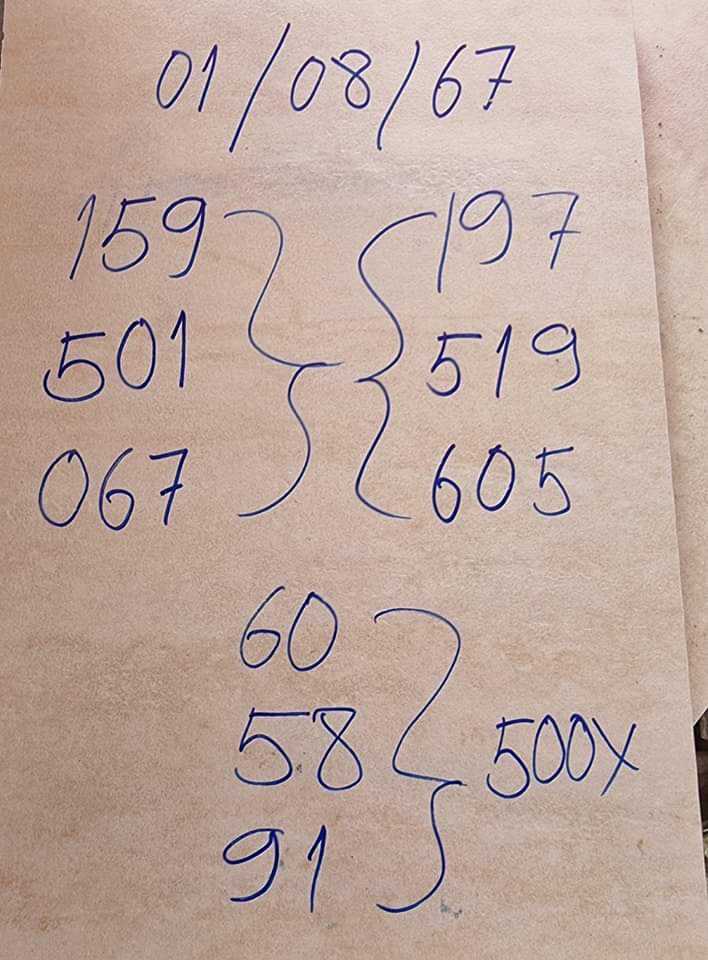 01/08/67
159 } { 197
501 } { 519
067 } { 605
60
58 } 500x
91